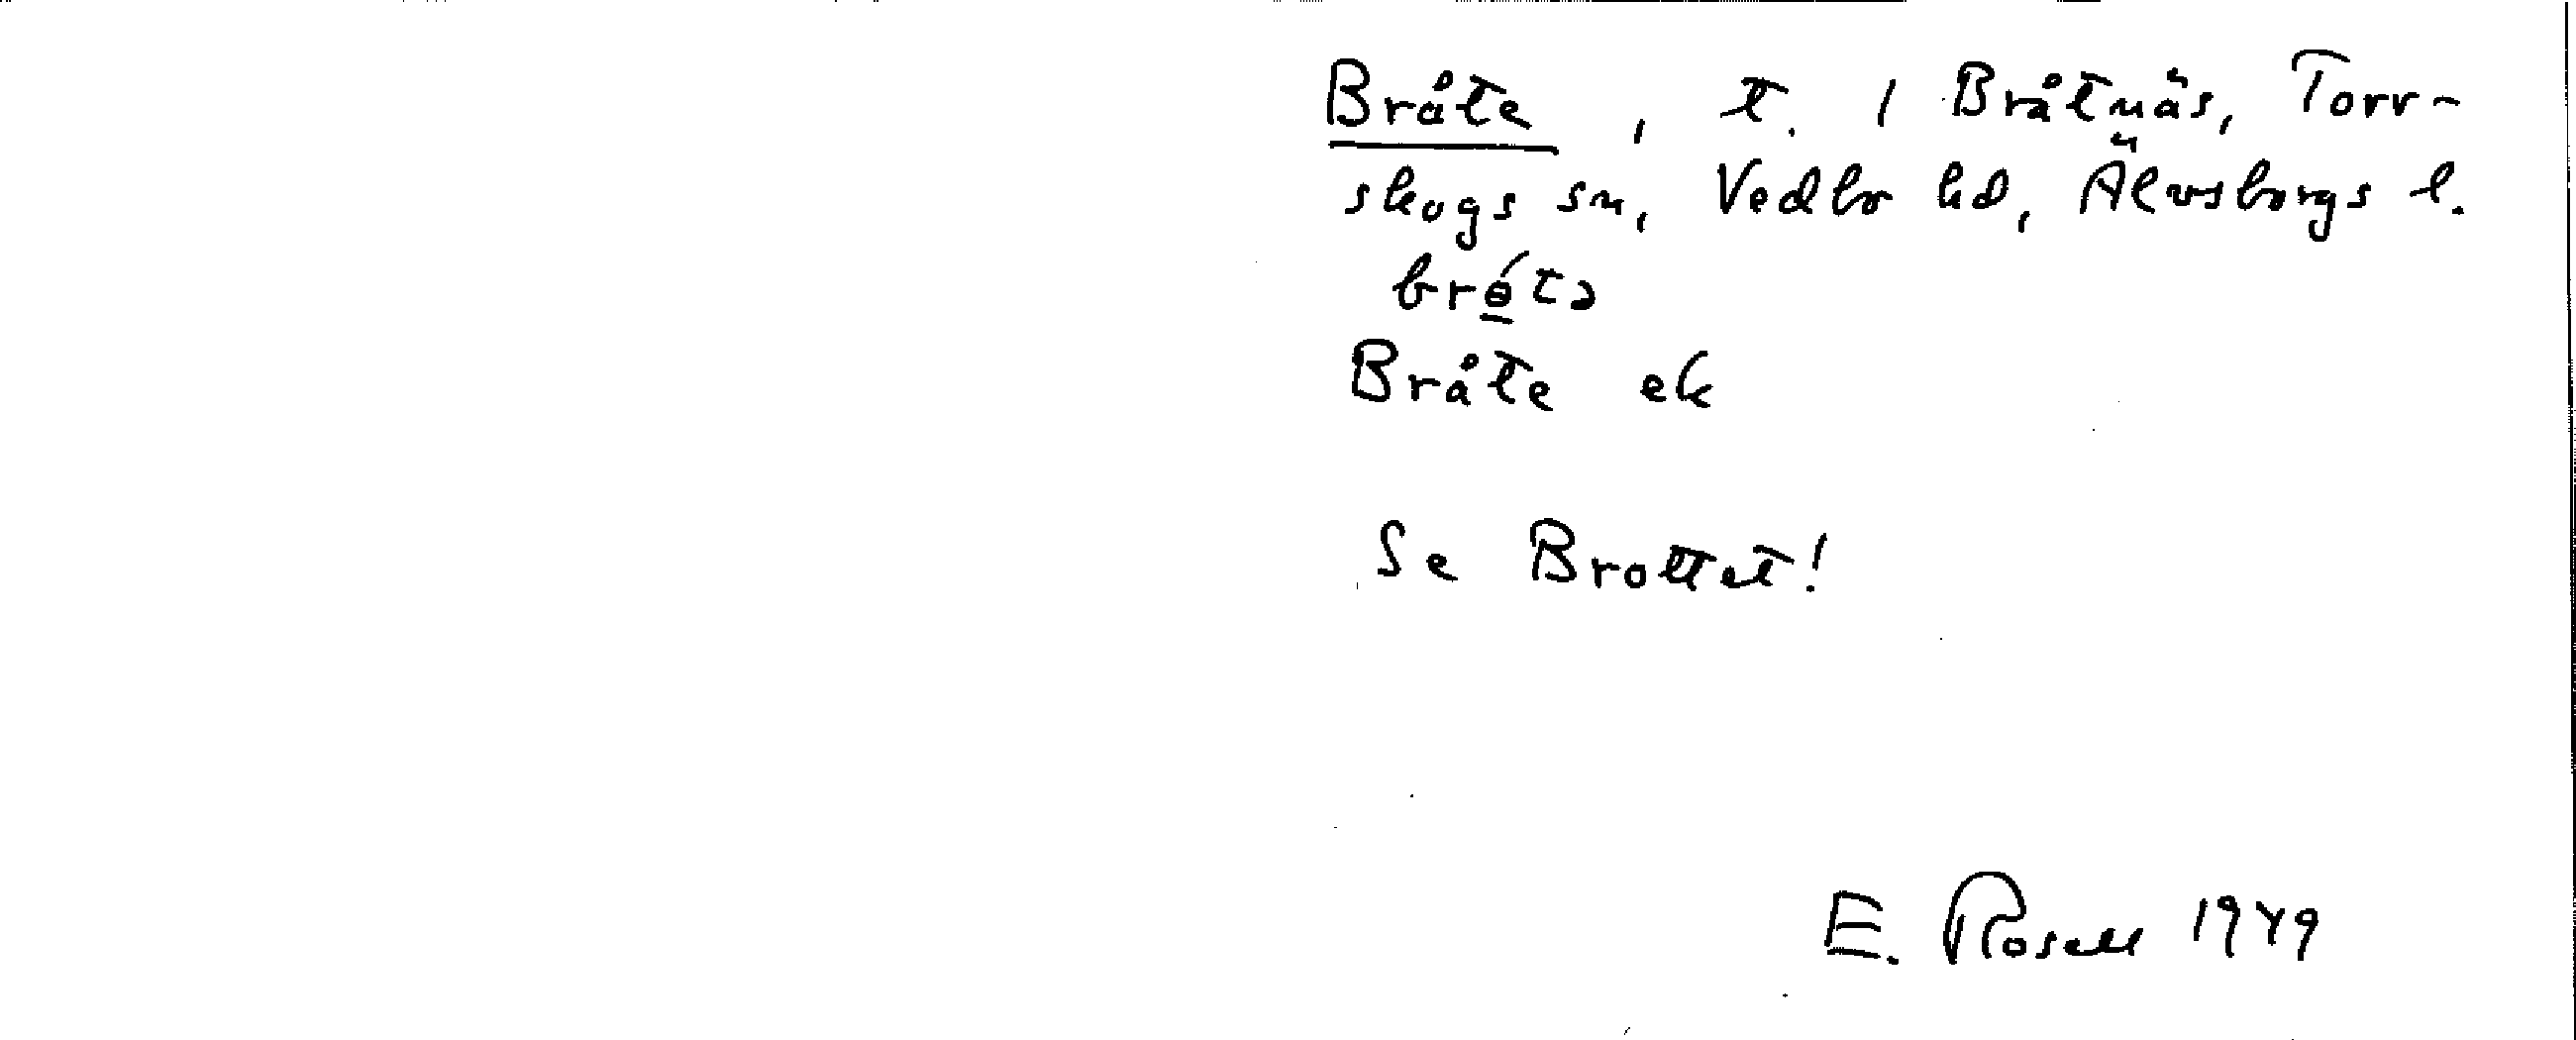 Bråte, t. / Bråtnäs, Torr-
skogs sn, Vedbo hd, Älvsborgs l.
bró̱tə
Bråte ek
Se Brottet!
E. Rosell 1949